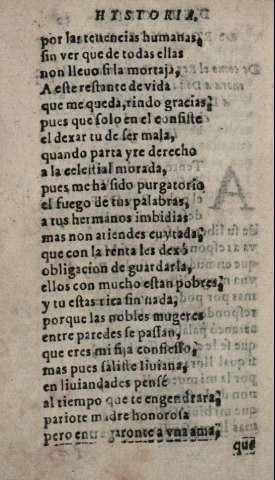 HYSTORIA,
por las tenencias humanas,
sin ver que de todas ellas
non lleuo si la mortaja,
A este restante de vida
que me queda, rindo gracias,
pues que solo en el consiste
el dexar tu de ser mala,
quando parta yre derecho
a la celestial morada,
pues me ha sido purgatorio
el fuego de tus palabras,
a tus hermanos imbidias
mas non atiendes cuytada,
que con la renta les dexò
obligacion de guardarla,
ellos con mucho estan pobres,
y tu estas rica sin nada,
porque las nobles mugeres
entre paredes se passan,
que eres mi fija confiesso,
mas pues saliste liuiana,
en liuiandades pensé
al tiempo que te engendrara,
pariote madre honorosa
pero entregaronte a vna ama,
que